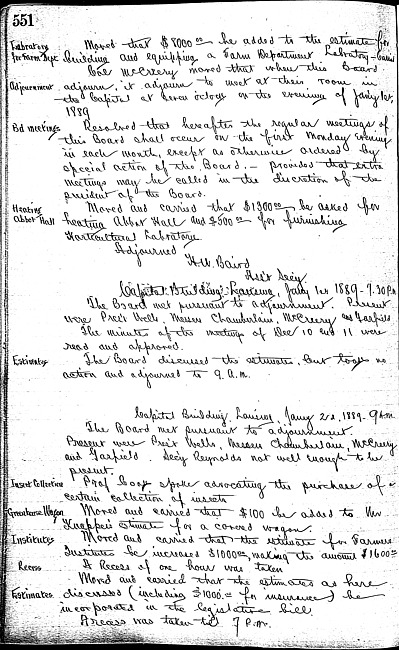 551
Labratory for Farm Dept
Moved that $8000.00 be added to the estimate for
building and equipping a Farm Department Labratory - Carried
Col McCreery moved that when this Board
Adjournment
adjourn, it adjourn to meet at their room in
the Capitol at seven oclock on the evening of Jany 1st,
1889
Bd meetings
Resolved that hereafter the regular meetings of
this Board shall occur on the first Monday evening
in each month, except as otherwise ordered by
special action of the Board. - provided that extra
meetings may be called in the discretion of the
president of the Board.
Heating Abbot Hall
Moved and carried that $1300.00 be asked for
heating Abbot Hall and $500.00 for furnishing
Horticultural Labratory
Adjourned
H.W. Baird
Ass't Secy
Capitol Building Lansing, Jany 1st 1889 - 7.30 P.M.
The Board met pursuant to adjournment. Present
were Pres't Wells, Messrs Chamberlain, McCreery and Garfield
The minutes of the meetings of Dec 10 and 11 were
read and approved.
Estimates
The Board discussed the estimates, but took no
action and adjourned to 9 a.m.
Capitol Building Lansing, Jany 2nd, 1889 - 9 A.M.
The Board met pursuant to adjournment.
Present were Pres't Wells, Messrs Chamberlain, McCreery
and Garfield. Secy Reynolds not well enough to be
present.
Insect Collection
Prof Cook spoke advocating the purchase of a
certain collection of insects
Greenhouse Wagon
Moved and carried that $100 be added to Mr
Knapper's estimate for a covered wagon.
Institutes
Moved and carried that the estimate for Farmers
Institute be increased $1000.00, making the amount $1600.00
Recess
A Recess of one hour was taken
Moved and carried that the estimates as here
Estimates
discussed (including $1000.00 for insurance) be
incorporated in the legislative bill.
A recess was taken till 7 P.M.